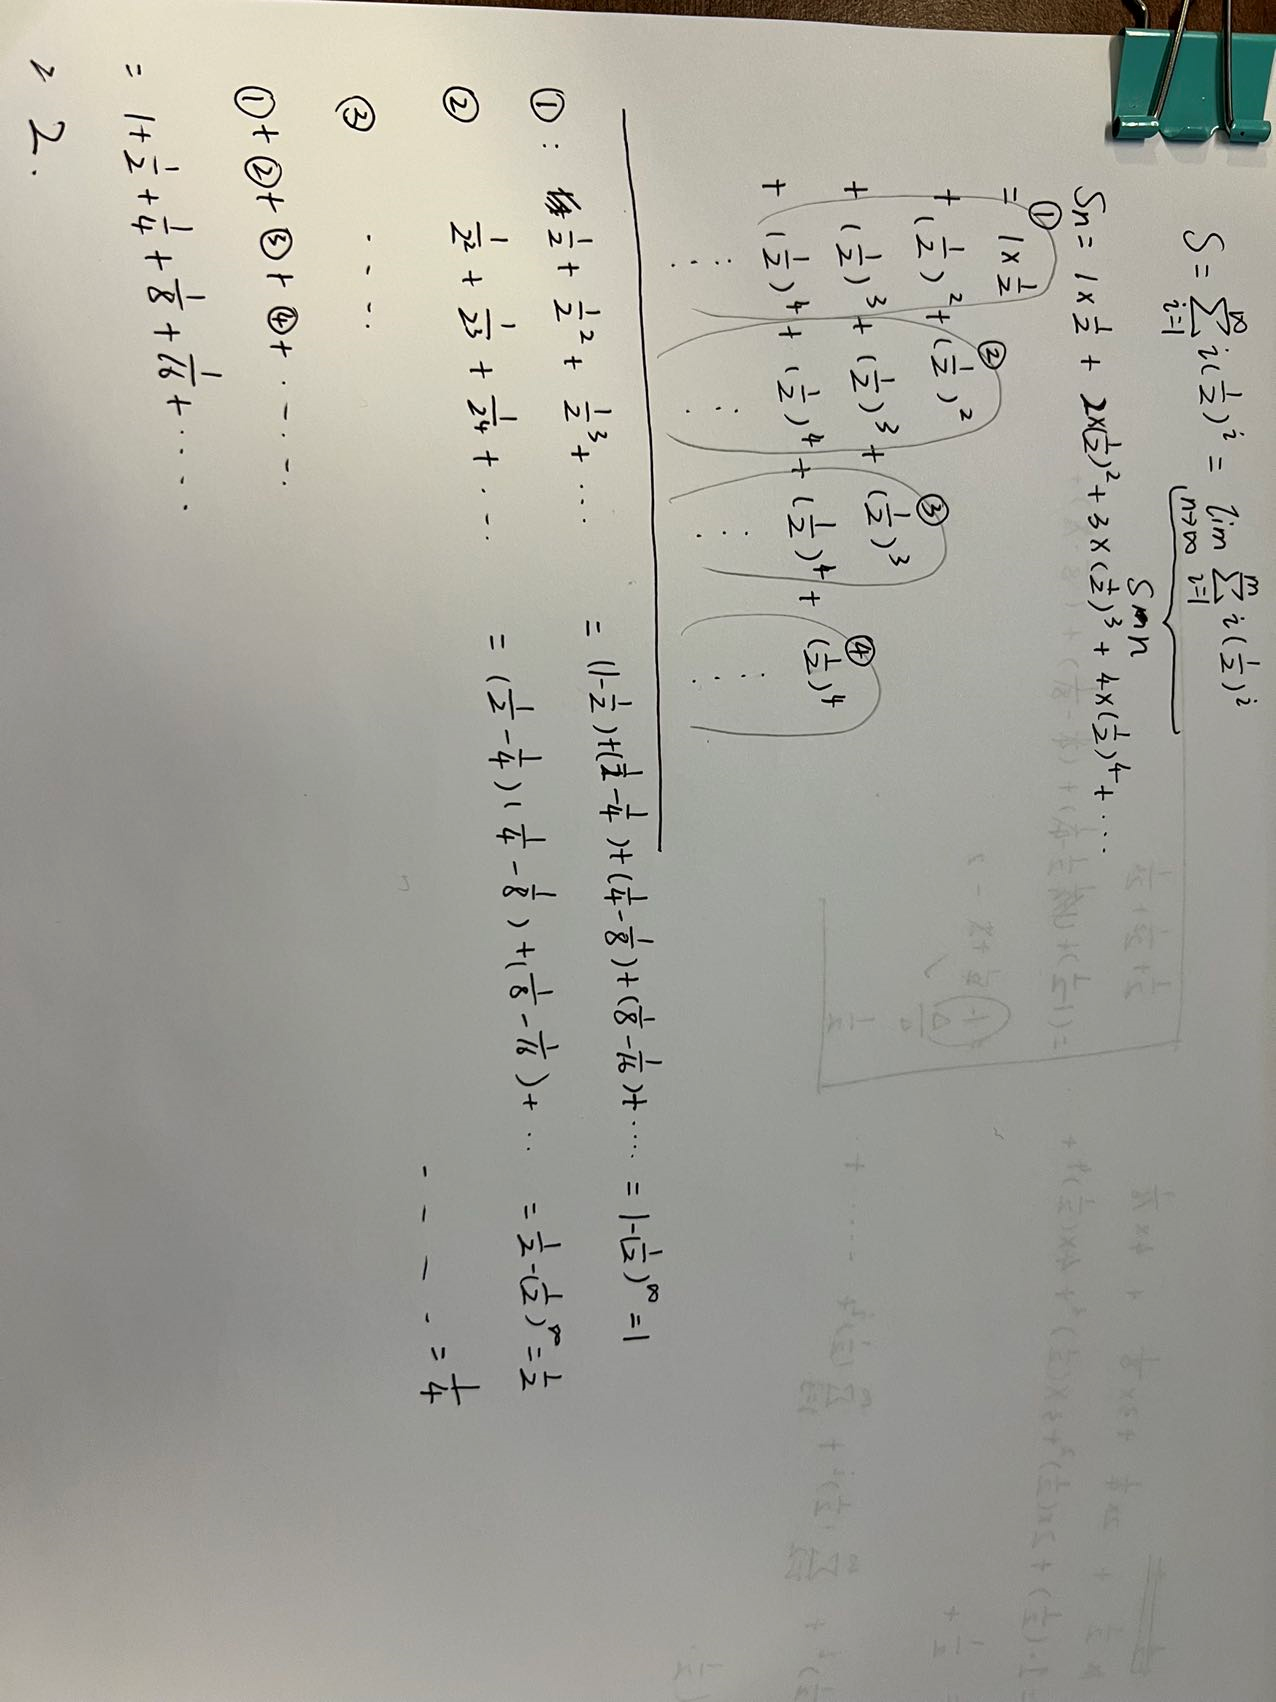 S = ∑_{i=1}^{∞} i(1/2)^i = lim_{n→∞} ∑_{i=1}^{n} i(1/2)^i
Sn
Sn = 1×1/2 + 2×(1/2)^2 + 3×(1/2)^3 + 4×(1/2)^4 + ...
① ② ③ ④
= 1×1/2
+ (1/2)^2 + (1/2)^2
+ (1/2)^3 + (1/2)^3 + (1/2)^3
+ (1/2)^4 + (1/2)^4 + (1/2)^4 + (1/2)^4
⋮ ⋮ ⋮ ⋮
①: 1/2 + 1/2^2 + 1/2^3 + ... = (1-1/2)+(1/2-1/4)+(1/4-1/8)+(1/8-1/16)+.... = 1-(1/2)^∞ = 1
② 1/2^2 + 1/2^3 + 1/2^4 + .... = (1/2-1/4)+(1/4-1/8)+(1/8-1/16)+... = 1/2-(1/2)^∞ = 1/2
③ .... - - - . = 1/4
①+②+③+④+.....
= 1+1/2+1/4+1/8+1/16+.....
2.